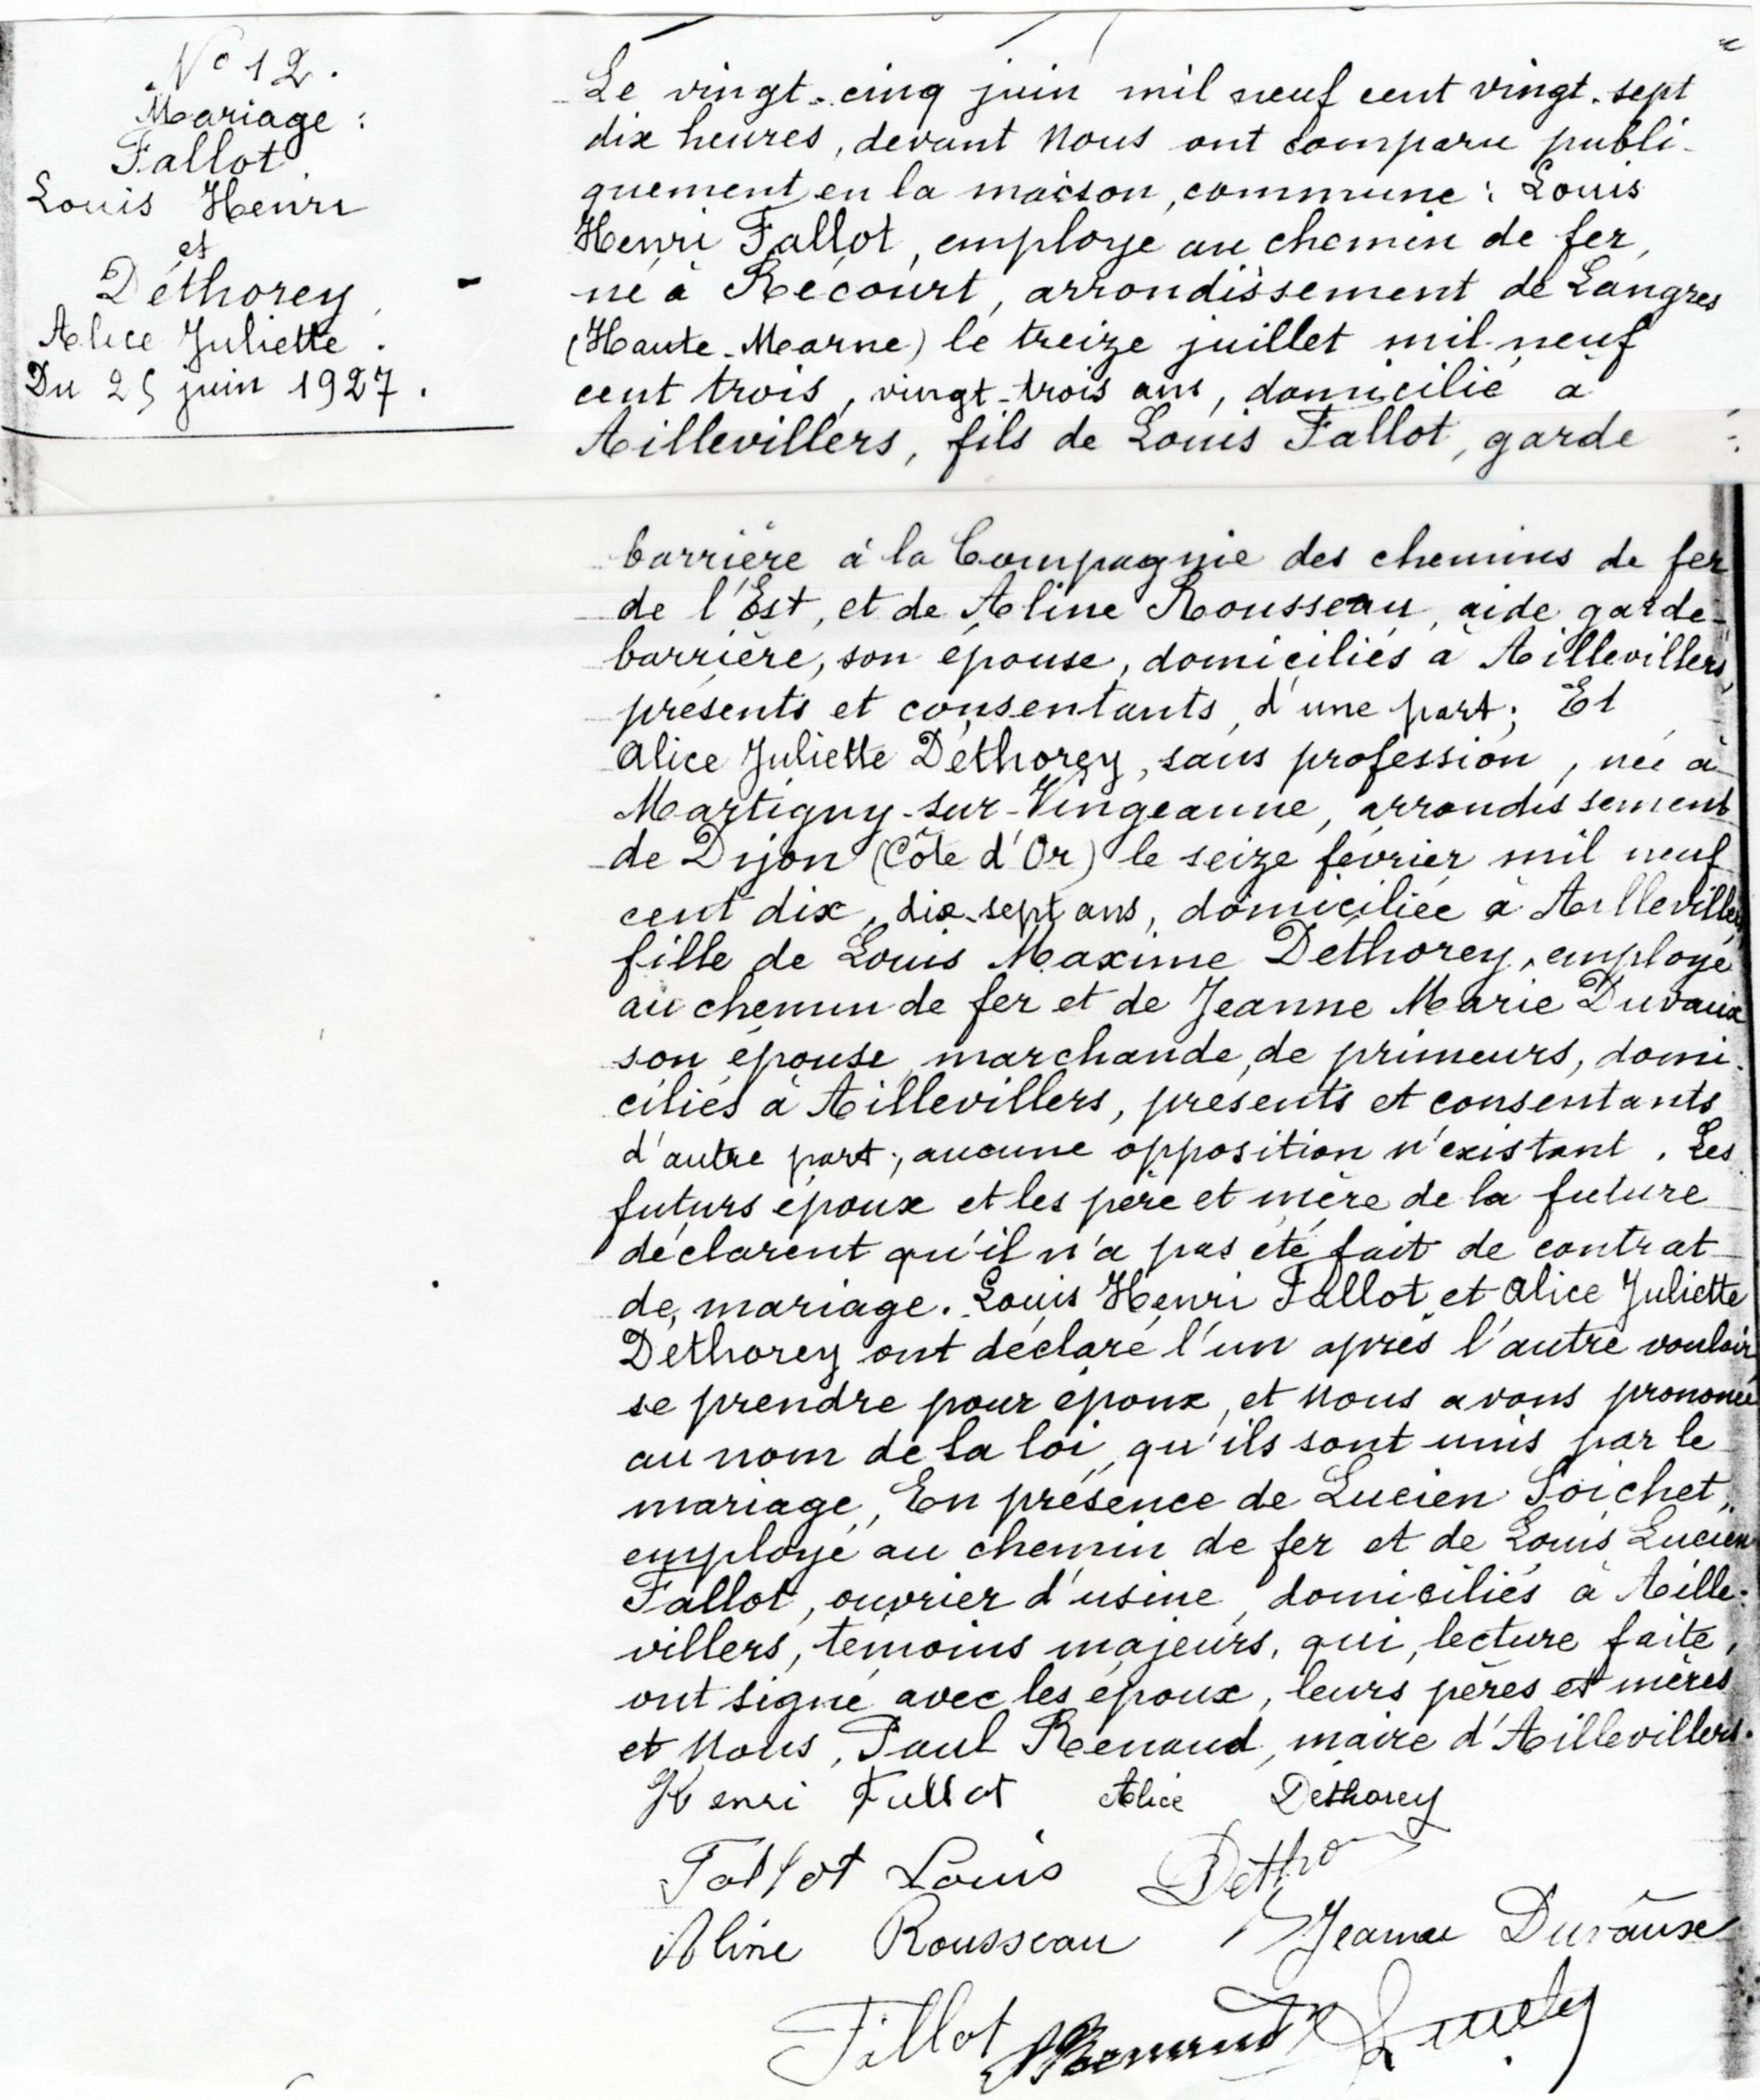 N° 12.
Mariage :
Fallot
Louis Henri
et
Déthorey
Alice Juliette.
Du 25 juin 1927.
Le vingt-cinq juin mil neuf cent vingt-sept
dix heures, devant Nous ont comparu publi-
quement en la maison commune : Louis
Henri Fallot, employé au chemin de fer,
né à Récourt, arrondissement de Langres
(Haute-Marne) le treize juillet mil-neuf
cent trois, vingt-trois ans, domicilié à
Aillevillers, fils de Louis Fallot, garde
barrière à la Compagnie des chemins de fer
de l'Est, et de Aline Rousseau, aide garde-
barrière, son épouse, domiciliés à Aillevillers,
présents et consentants, d'une part; Et
Alice Juliette Déthorey, sans profession, née à
Martigny-sur-Vingeanne, arrondissement
de Dijon (Côte d'Or) le seize février mil neuf
cent dix, dix-sept ans, domiciliée à Aillevillers,
fille de Louis Maxime Dethorey, employé
au chemin de fer et de Jeanne Marie Duvaux
son épouse, marchande de primeurs, domi-
ciliés à Aillevillers, présents et consentants
d'autre part; aucune opposition n'existant. Les
futurs époux et les père et mère de la future
déclarent qu'il n'a pas été fait de contrat
de mariage. Louis Henri Fallot et Alice Juliette
Déthorey ont déclaré l'un après l'autre vouloir
se prendre pour époux, et Nous avons prononcé
au nom de la loi, qu'ils sont unis par le
mariage, En présence de Lucien Poichet,
employé au chemin de fer et de Louis Lucien
Fallot, ouvrier d'usine, domiciliés à Aille-
villers, témoins majeurs, qui, lecture faite,
ont signé avec les époux, leurs pères et mères
et Nous, Paul Renaud, maire d'Aillevillers.
Henri Fallot Alice Dethorey
Fallot Louis Detho
Aline Rousseau Jeanne Duvause
Fallot Renaud